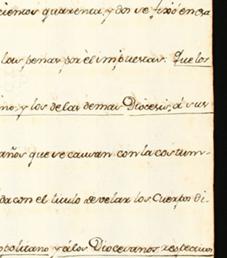 cientos quarenta, y dos se fixó en esa
las penas por èl impuestas. Que los
no, y los de las demas Diocesis, á sus
años que se causan con la costum-
da con el titulo de velar los Cuerpos di-
opolitano y à los Diocesanos respectivos